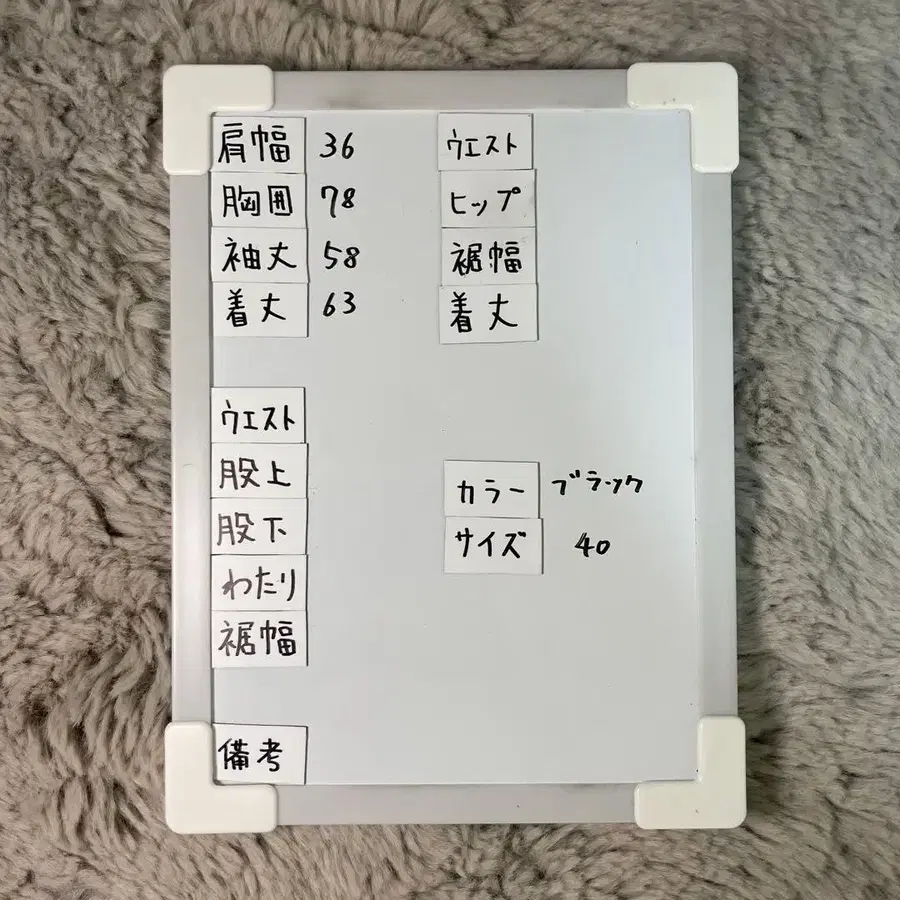 肩幅 36
胸囲 78
袖丈 58
着丈 63
ウエスト
股上
股下
わたり
裾幅
備考
ウエスト
ヒップ
裾幅
着丈
カラー ブラック
サイズ 40